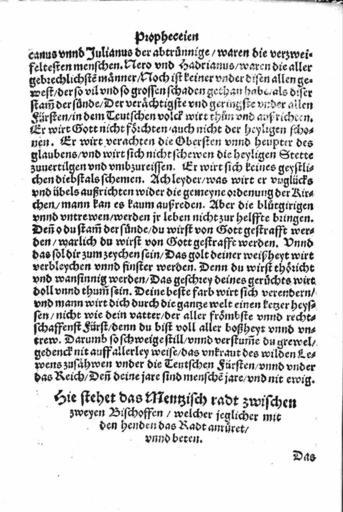 Propheceien
canus vnnd Julianus der abtrünnige/ waren die verzwei-
feltesten menschen. Nero vnd Hadrianus/ waren die aller
gebrechlichstē männer/ Noch ist keiner vnder disen allen ge-
west/ der so vil vnd so grossen schaden gethan habe/ als diser
stam̃ der sünde/ Der verächtigste vnd geringste vnder allen
Fürsten/ in dem Teutschen volck wirt thün vnd außrichten.
Er wirt Gott nicht förchten/ auch nicht der heyligen scho-
nen. Er wirt verachten die Obersten vnnd heupter des
glaubens/ vnd wirt sich nicht schewen die heyligen Stette
zuuertilgen vnd vmbzureissen. Er wirt sich keines geystli-
chen diebstals schemen. Ach leyder/ was wirt er vnglücks
vnd übels außrichten wider die gemeyne ordenung der Kir-
chen/ mann kan es kaum außreden. Aber die blütgirigen
vnnd vntrewen/ werden jr leben nicht zur helffte bringen.
Den̄ o du stam̃ der sünde/ du wirst von Gott gestrafft wer-
den/ warlich du wirst von Gott gestrafft werden. Vnnd
das sol dir zum zeychen sein/ Das golt deiner weißheyt wirt
verbleychen vnnd finster werden. Denn du wirst thöricht
vnd wansinnig werden/ Das geschrey deines gerüchts wirt
doll vnnd thum̃ sein. Deine beste farb wirt sich verendern/
vnd mann wirt dich durch die gantze welt einen ketzer heys-
sen/ nicht wie dein vatter/ der aller frömbste vnnd recht-
schaffenst Fürst/ denn du bist voll aller boßheyt vnnd vn-
trew. Darumb so schweige still/ vnnd verstum̃e du grewel/
gedenck nit auff allerley weise/ das vnkraut des wilden Le-
wens zusähwen vnder die Teutschen Fürsten/ vnnd vnder
das Reich/ Den̄ deine jare sind menschē jare/ vnd nit ewig.
Hie stehet das Mentzisch radt zwischen
zweyen Bischoffen/ welcher jeglicher mit
den henden das Radt anrüret/
vnnd beten.
Das